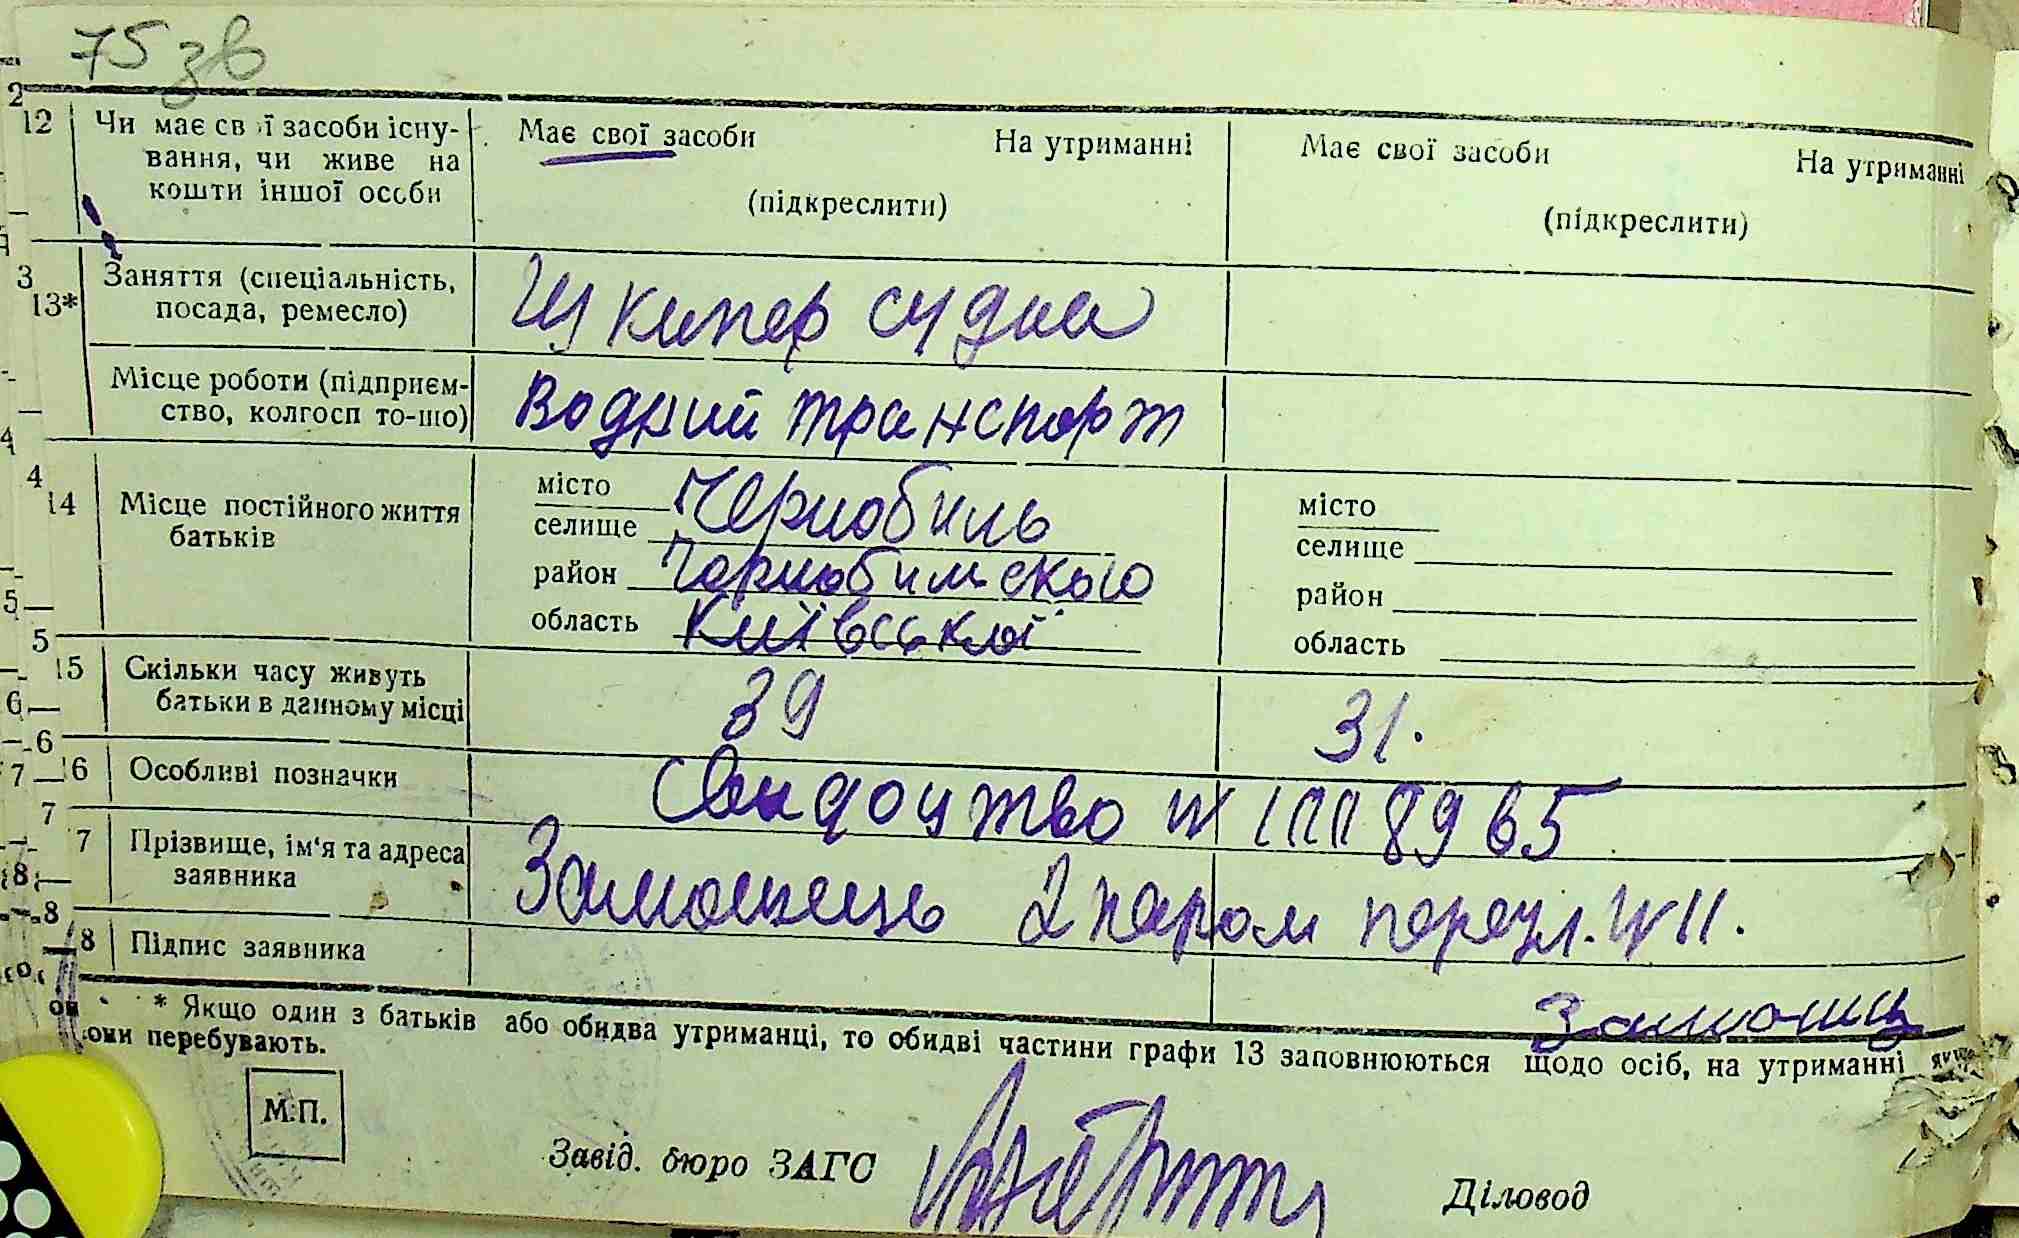 75 зв
12 Чи має св ї засоби існу- Має свої засоби На утриманні Має свої засоби На утриманні
вання, чи живе на
кошти іншої особи (підкреслити) (підкреслити)
13* Заняття (спеціальність, Шкипер судна
посада, ремесло)
Місце роботи (підприєм- Водний транспорт
ство, колгосп то-що)
14 Місце постійного життя місто Чернобиль місто
батьків селище селище
район Чорнобильського район
область Київської область
15 Скільки часу живуть 39 31.
батьки в данному місці
16 Особливі позначки Свидоцтво № 8965
7 Прізвище, ім'я та адреса Замошець 2 паром переул. № 11.
заявника
8 Підпис заявника
Замошец
* Якщо один з батьків або обидва утриманці, то обидві частини графи 13 заповнюються щодо осіб, на утриманні яких
вони перебувають.
М.П.
Завід. бюро ЗАГС Діловод